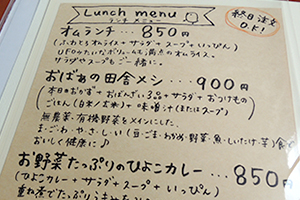 Lunch menu
ランチ メニュー
終日注文
O.K!
オムランチ・・・850円
(ふわとろオムライス + サラダ + スープ + いっぴん)
UFOみたいなボリューム満点のオムライス。
サラダやスープもご一緒に。
おばぁの田舎メシ・・・900円
(本日のおかず + おばんざい3品 + サラダ + おつけもの
ごはん(白米/玄米) + 味噌汁(またはスープ)
無農薬・有機野菜をメインにした、
ま・ご・わ・や・さ・し・い (豆・ごま・わかめ・野菜・魚・しいたけ・芋)食で
おいしく健康に♪
お野菜たっぷりのひよこカレー・・・850円
(ひよこカレー + サラダ + スープ + いっぴん)